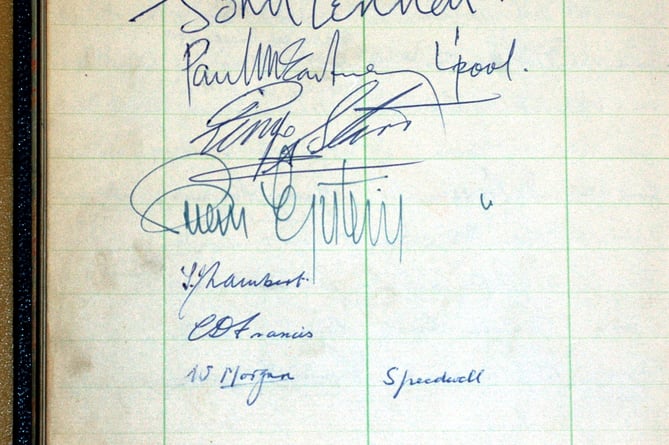 John Lennon "
Paul McCartney L'pool.
Ringo Starr
Brian Epstein "
T. J. Lambert.
C D Francis
W Morgan Speedwell